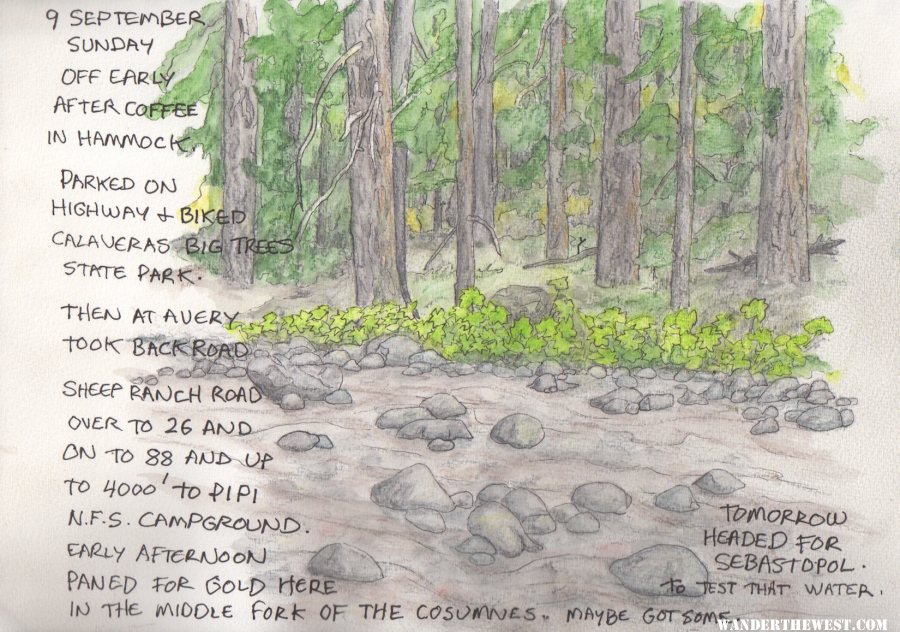 9 SEPTEMBER
SUNDAY
OFF EARLY
AFTER COFFEE
IN HAMMOCK.
PARKED ON
HIGHWAY + BIKED
CALAVERAS BIG TREES
STATE PARK.
THEN AT AVERY
TOOK BACKROAD
SHEEP RANCH ROAD
OVER TO 26 AND
ON TO 88 AND UP
TO 4000' TO PIPI
N.F.S. CAMPGROUND.
EARLY AFTERNOON
PANED FOR GOLD HERE
IN THE MIDDLE FORK OF THE COSUMNES.. MAYBE GOT SOME
TOMORROW
HEADED FOR
SEBASTOPOL.
TO TEST THAT WATER.
WANDERTHEWEST.COM